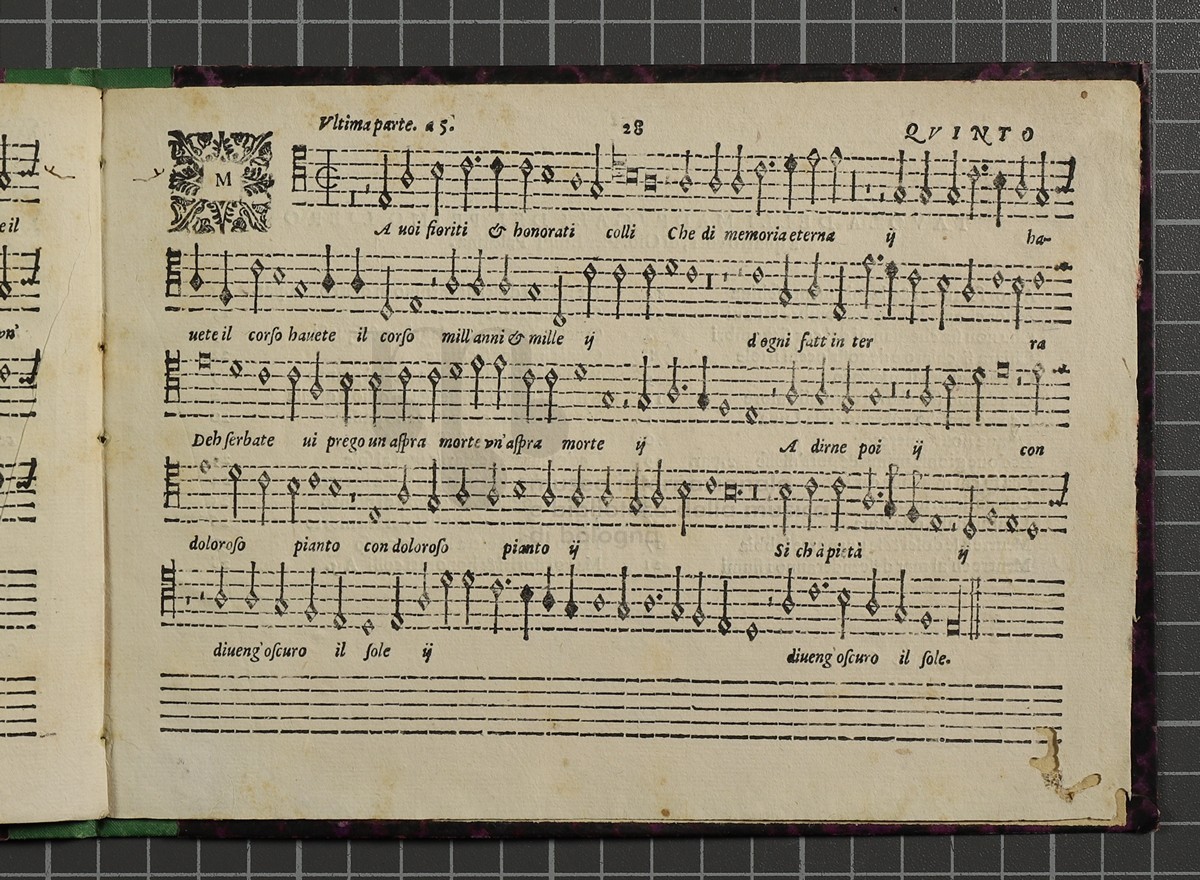 e il
vn'
Vltima parte. a 5.
28
QVINTO
M
A uoi fioriti & honorati colli Che di memoria eterna ij ha-
uete il corſo hauete il corſo mill'anni & mille ij d'ogni fatt'in ter ra
Deh ſerbate ui prego un aſpra morte vn'aſpra morte ij A dirne poi ij con
doloroſo pianto con doloroſo pianto ij Si ch'à pietà ij
diueng'oſcuro il ſole ij diueng'oſcuro il ſole.